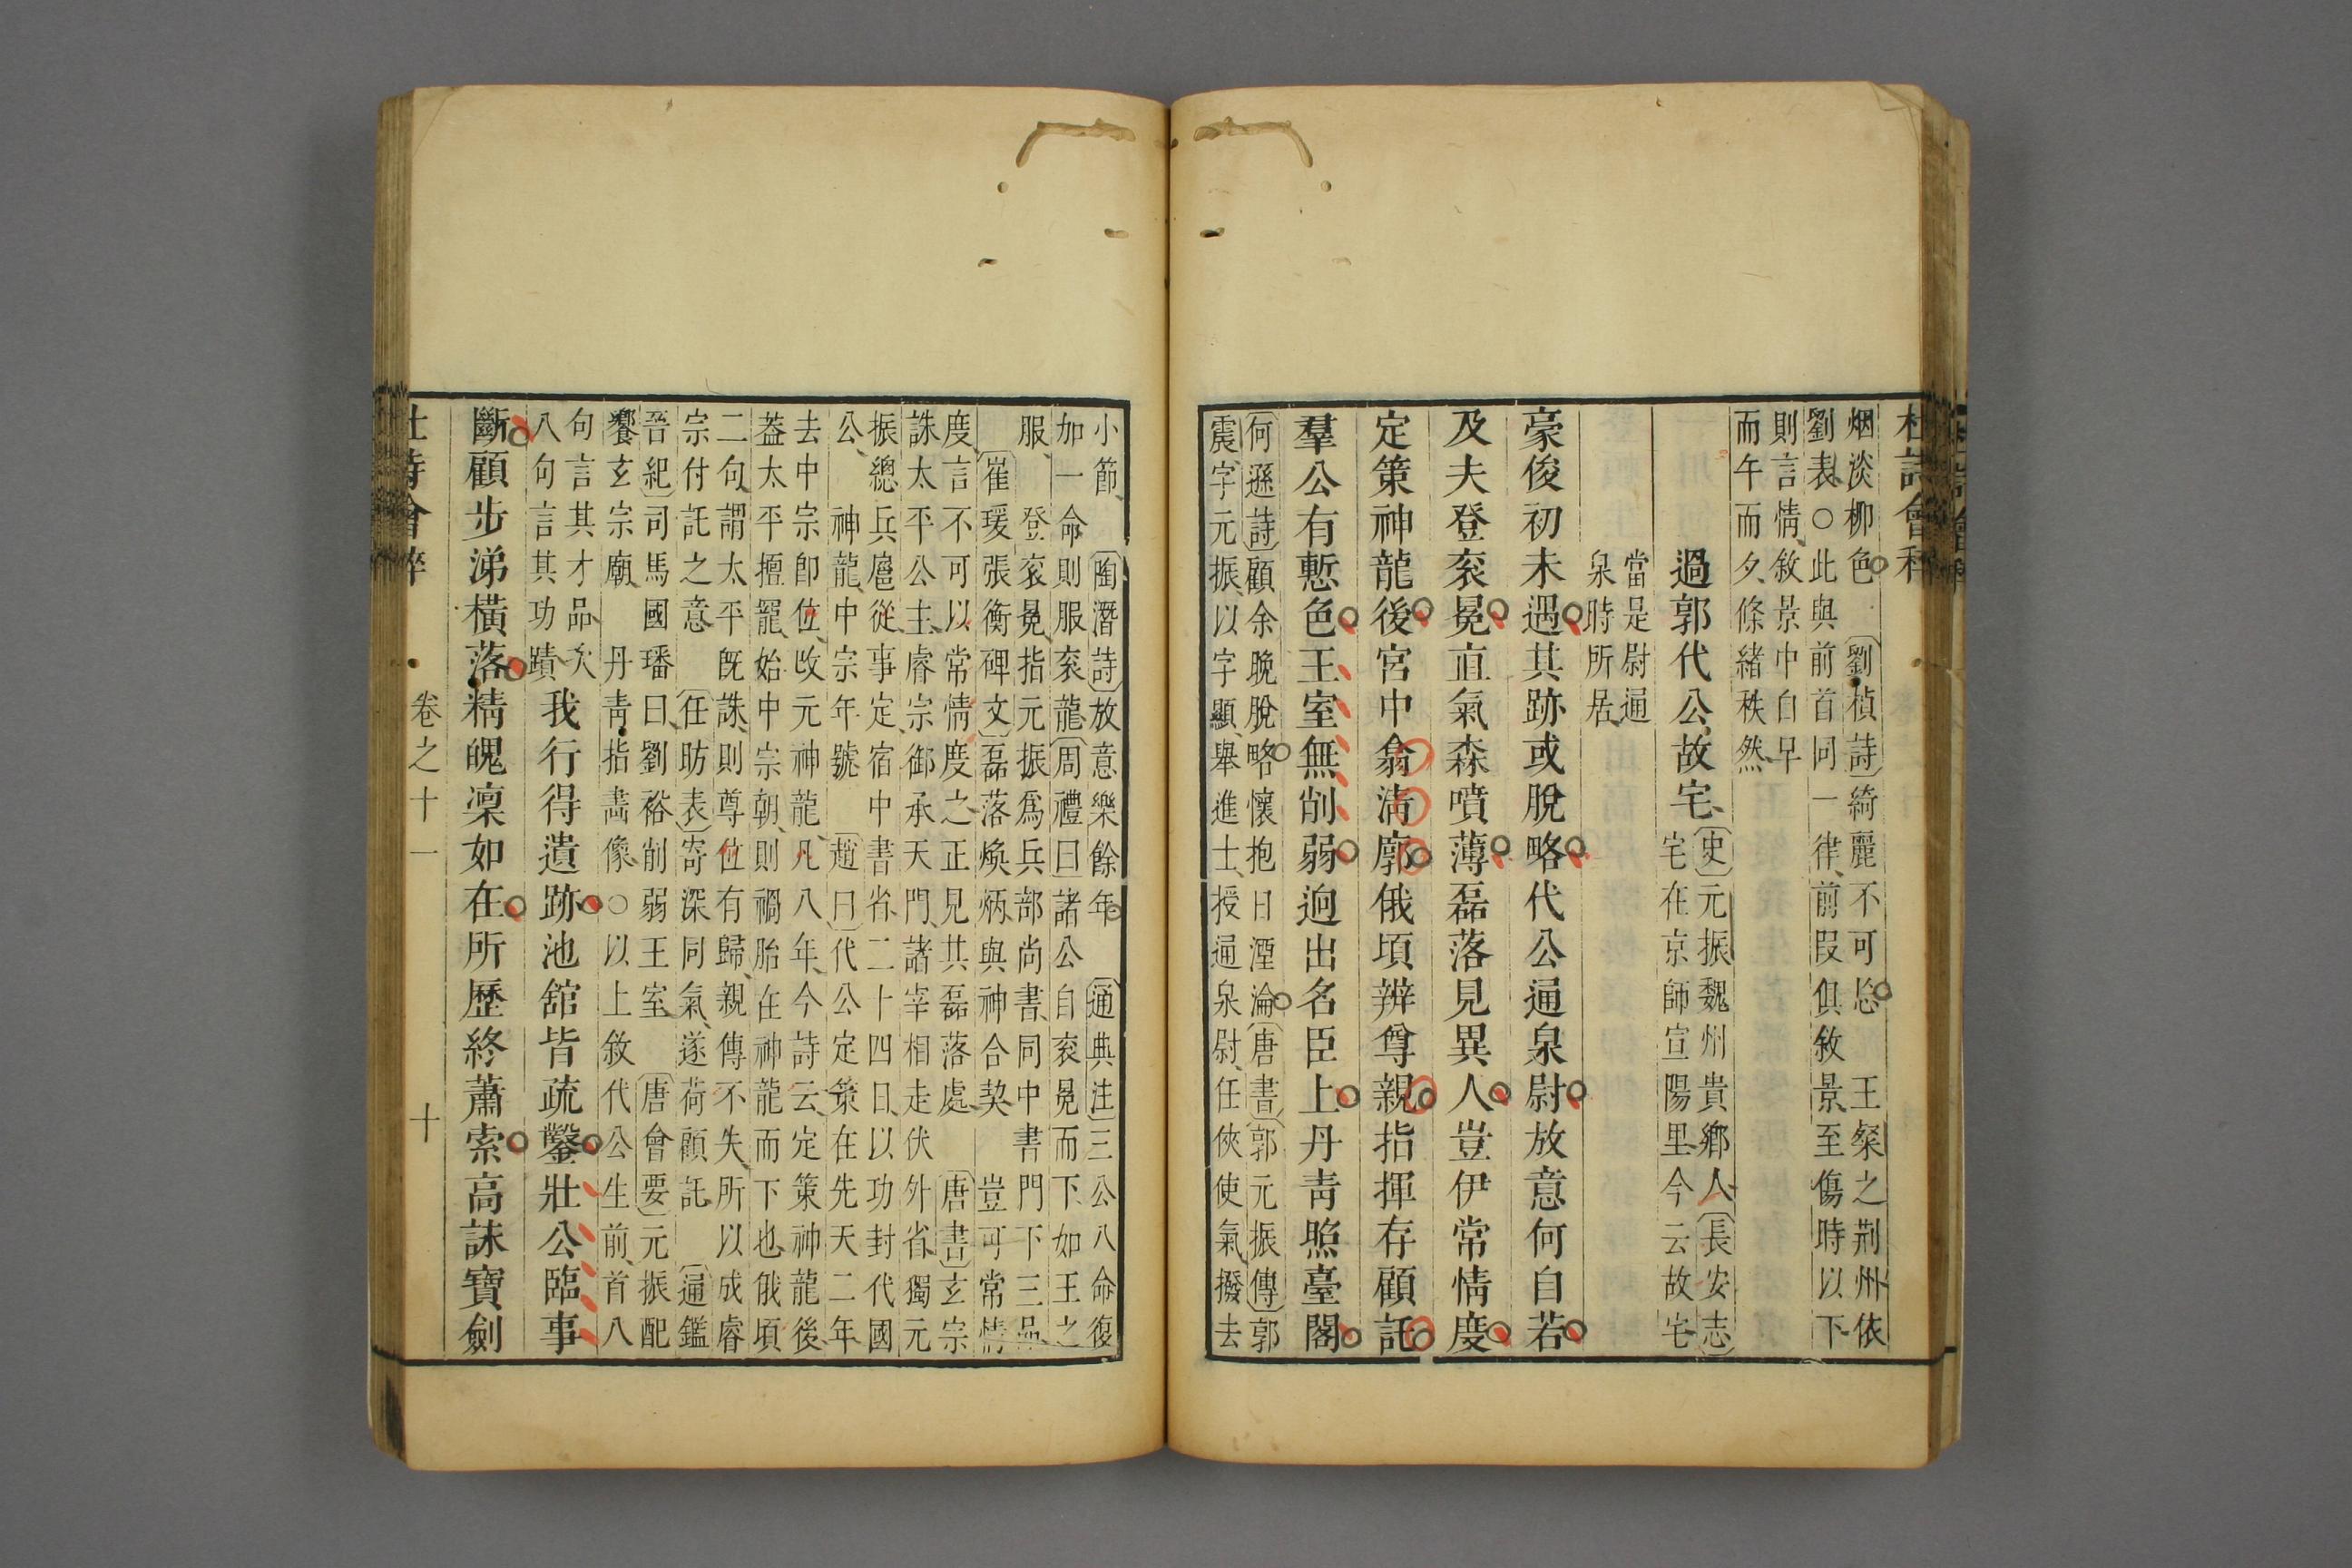 杜詩會稡
烟淡柳色　劉楨詩綺麗不可忘　王粲之荆州依
劉表○此與前首同一律前叚俱敘景至傷時以下
則言情敘景中自早
而午而夕條緒秩然
過郭代公故宅
史元振魏州貴鄉人長安志
宅在京師宣陽里今云故宅
當是尉通
泉時所居
豪俊初未遇其跡或脫略代公通泉尉放意何自若
及夫登衮冕直氣森噴薄磊落見異人豈伊常情度
定策神龍後宮中翕淸廓俄頃辨尊親指揮存顧託
羣公有慙色王室無削弱迥出名臣上丹靑照臺閣
何遜詩顧余晚脫略懷抱日湮淪唐書郭元振傳郭
震字元振以字顯舉進士授通泉尉任俠使氣撥去
小節　陶潛詩放意樂餘年　通典注三公八命復
加一命則服衮龍周禮曰諸公自衮冕而下如王之
服　登衮冕指元振爲兵部尚書同中書門下三品
崔瑗張衡碑文磊落煥炳與神合契　豈可常情
度言不可以常情度之正見其磊落處　唐書玄宗
誅太平公主睿宗御承天門諸宰相走伏外省獨元
振總兵扈從事定宿中書省二十四日以功封代國
公　神龍中宗年號　趙曰代公定策在先天二年
去中宗卽位改元神龍凡八年今詩云定策神龍後
葢太平擅寵始中宗朝則禍胎在神龍而下也俄頃
二句謂太平旣誅則尊位有歸親傳不失所以成睿
宗付託之意　任昉表寄深同氣遂荷顧託　通鑑
晉紀司馬國璠曰劉裕削弱王室　唐會要元振配
饗玄宗廟　丹靑指畵像○以上敘代公生前首八
句言其才品次
八句言其功蹟
我行得遺跡池舘皆疏鑿壯公臨事
斷顧步涕橫落精魄凜如在所歷終蕭索高詠寶劍
杜詩會稡　卷之十一　十